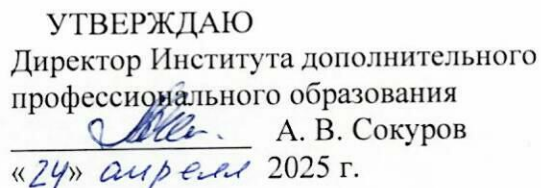 УТВЕРЖДАЮ
Директор Института дополнительного
профессионального образования
А. В. Сокуров
«24» апреля 2025 г.